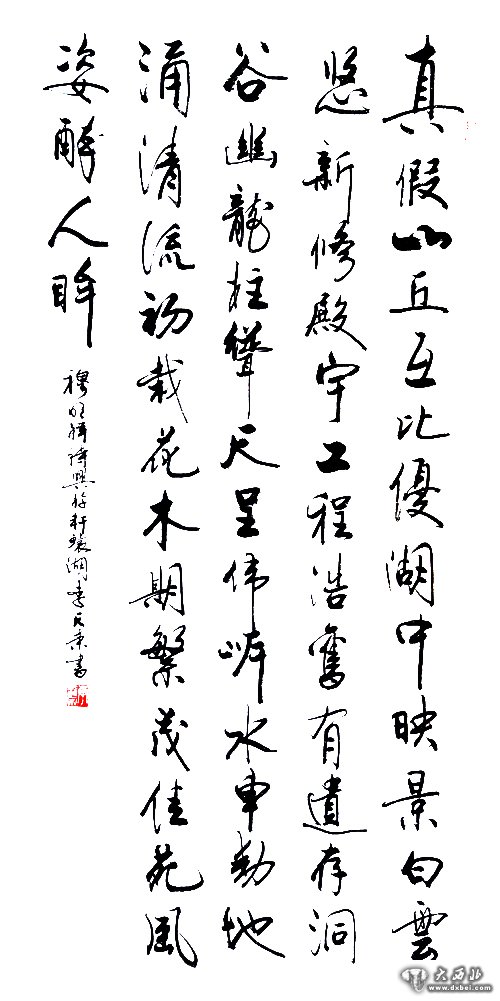 真假山丘互比優湖中映景白雲
悠新修殿宇工程浩舊有遺存洞
谷幽龍柱聳天呈偉岸水車動地
涌清流初栽花木期繁茂佳苑風
姿醉人眸
穆 湖李 書
大西北
www.dxbei.com